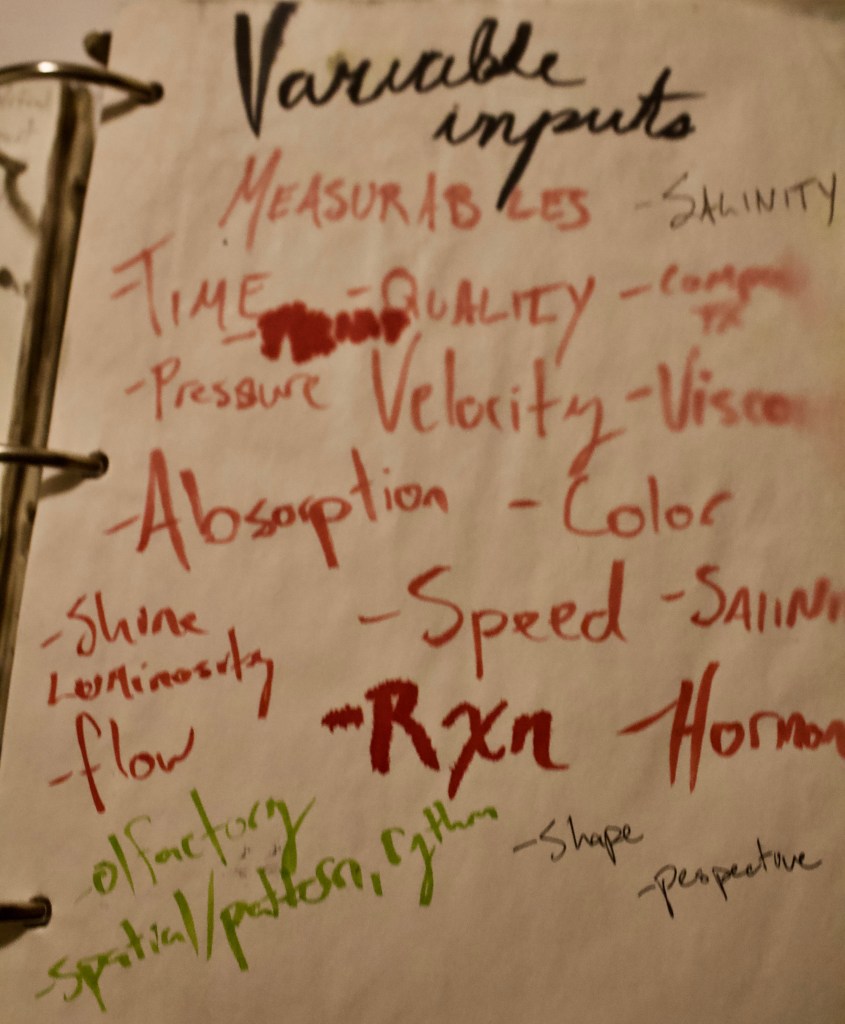 Variable
inputs
MEASURABLES -SALINITY
-TIME -QUALITY
-Pressure Velocity -Visco
-Absorption -Color
-Shine -Speed -SAlINi
Luminosity
-flow -Rxn -Hormon
-olfactory -Shape
-spatial/pattern, rythm -pespective